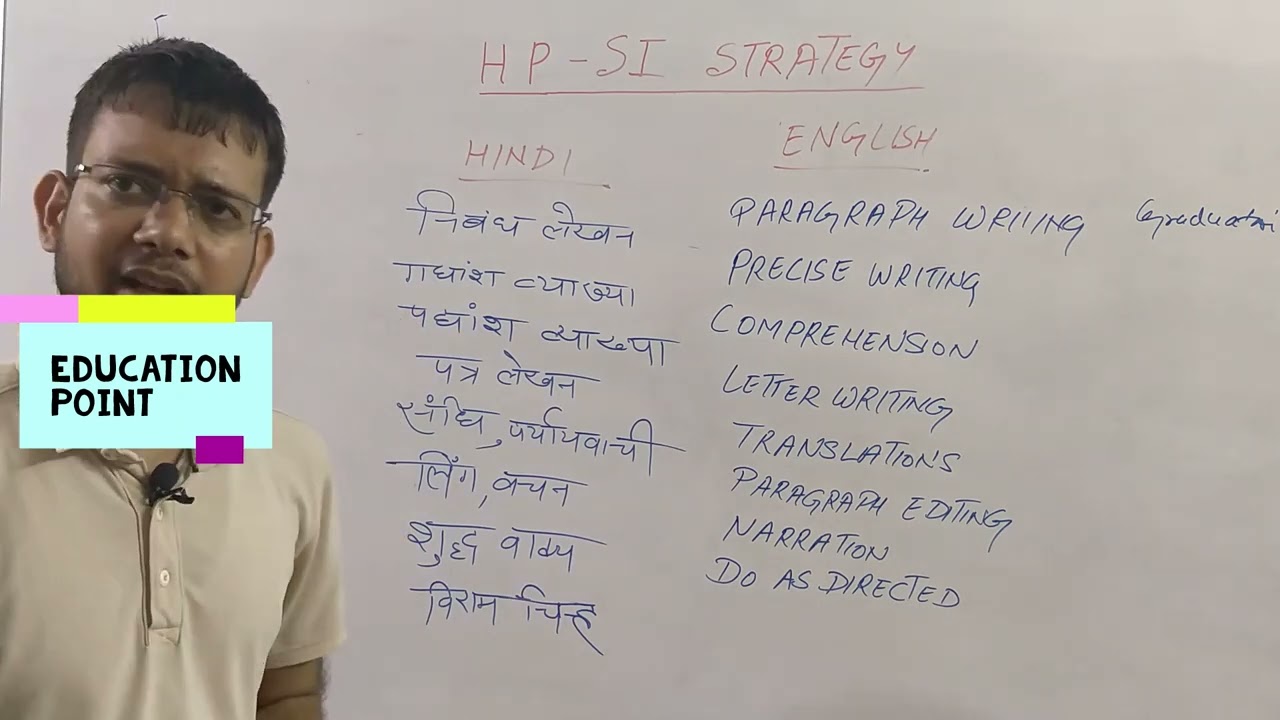 HP-SI STRATEGY
HINDI
निबंध लेखन
गद्यांश व्याख्या
पद्यांश व्याख्या
पत्र लेखन
संधि, पर्यायवाची
लिंग, वचन
शुद्ध वाक्य
विराम चिन्ह
ENGLISH
PARAGRAPH WRITING
PRECISE WRITING
COMPREHENSION
LETTER WRITING
TRANSLATIONS
PARAGRAPH EDITING
NARRATION
DO AS DIRECTED
EDUCATION
POINT